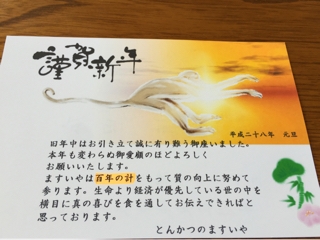 謹賀新年
平成二十八年 元旦
旧年中はお引き立て誠に有り難う御座いました。
本年も変わらぬ御愛顧のほどよろしく
お願いいたします。
ますいやは百年の計をもって質の向上に努めて
参ります。生命より経済が優先している世の中を
横目に真の喜びを食を通してお伝えできればと
思っております。
とんかつのますいや